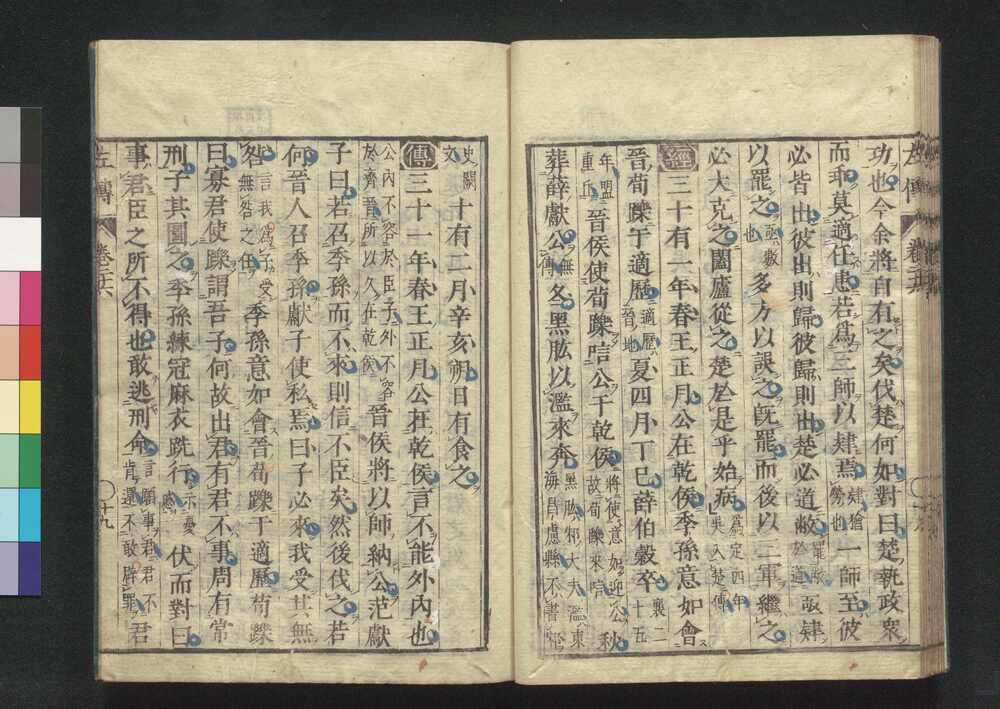 功也今余將自有之矣伐楚何如對曰楚執政衆
而乖莫適任患若爲三師以肄焉肄猶勞也一師至彼
必皆出彼出則歸彼歸則出楚必道敝罷敝於道亟肄
以罷之亟數也多方以誤之旣罷而後以三軍繼之
必大克之闔廬從之楚於是乎始病爲定四年吳入楚傳
經三十有一年春王正月公在乾侯季孫意如會
晉荀躒于適歷適歷晉地夏四月丁巳薛伯穀卒襄二十五
年盟重丘晉侯使荀躒唁公于乾侯將使意如迎公故荀躒來唁秋
葬薛獻公無傳冬黑肱以濫來奔黑肱邾大夫濫東海昌慮縣不書邾
左傳 卷二六
史闕文十有二月辛亥朔日有食之
傳三十一年春王正月公在乾侯言不能外內也
公內不容於臣子外不容於齊晉所以久在乾侯晉侯將以師納公范獻
子曰若召季孫而不來則信不臣矣然後伐之若
何晉人召季孫獻子使私焉曰子必來我受其無
咎言我爲子受無咎之任季孫意如會晉荀躒于適歷荀躒
曰寡君使躒謂吾子何故出君有君不事周有常
刑子其圖之季孫練冠麻衣跣行示憂慼伏而對曰
事君臣之所不得也敢逃刑命言願事君君不肯還不敢辟罪君
左傳 卷二六 十九